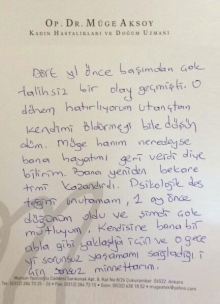 OP. DR. MÜGE AKSOY
KADIN HASTALIKLARI VE DOĞUM UZMANI
Dört yıl önce başımdan çok
talihsiz bir olay geçmişti. O
dönem hatırlıyorum utançtan
kendimi öldürmeyi bile düşün
düm. Müge hanım neredeyse
bana hayatımı geri verdi diye
bilirim. Bana yeniden bekare
timi kazandırdı. Psikolojik des
teğini unutamam, 1 ay önce
düğünüm oldu ve şimdi çok
mutluyum. Kendisine bana bir
abla gibi yaklaştığı için ve o gece
yi sorunsuz yaşamamı sağladığı i
çin sonsuz minnettarım.